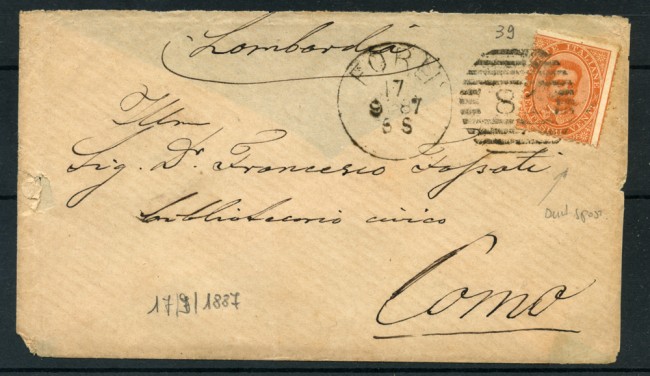 39
Lombardia
FORLI
17
9 87
8 S
8
POSTE ITALIANE
Illmo
Sig. Dr. Francesco Fossati
bibliotecario civico
Como
17/9/1887